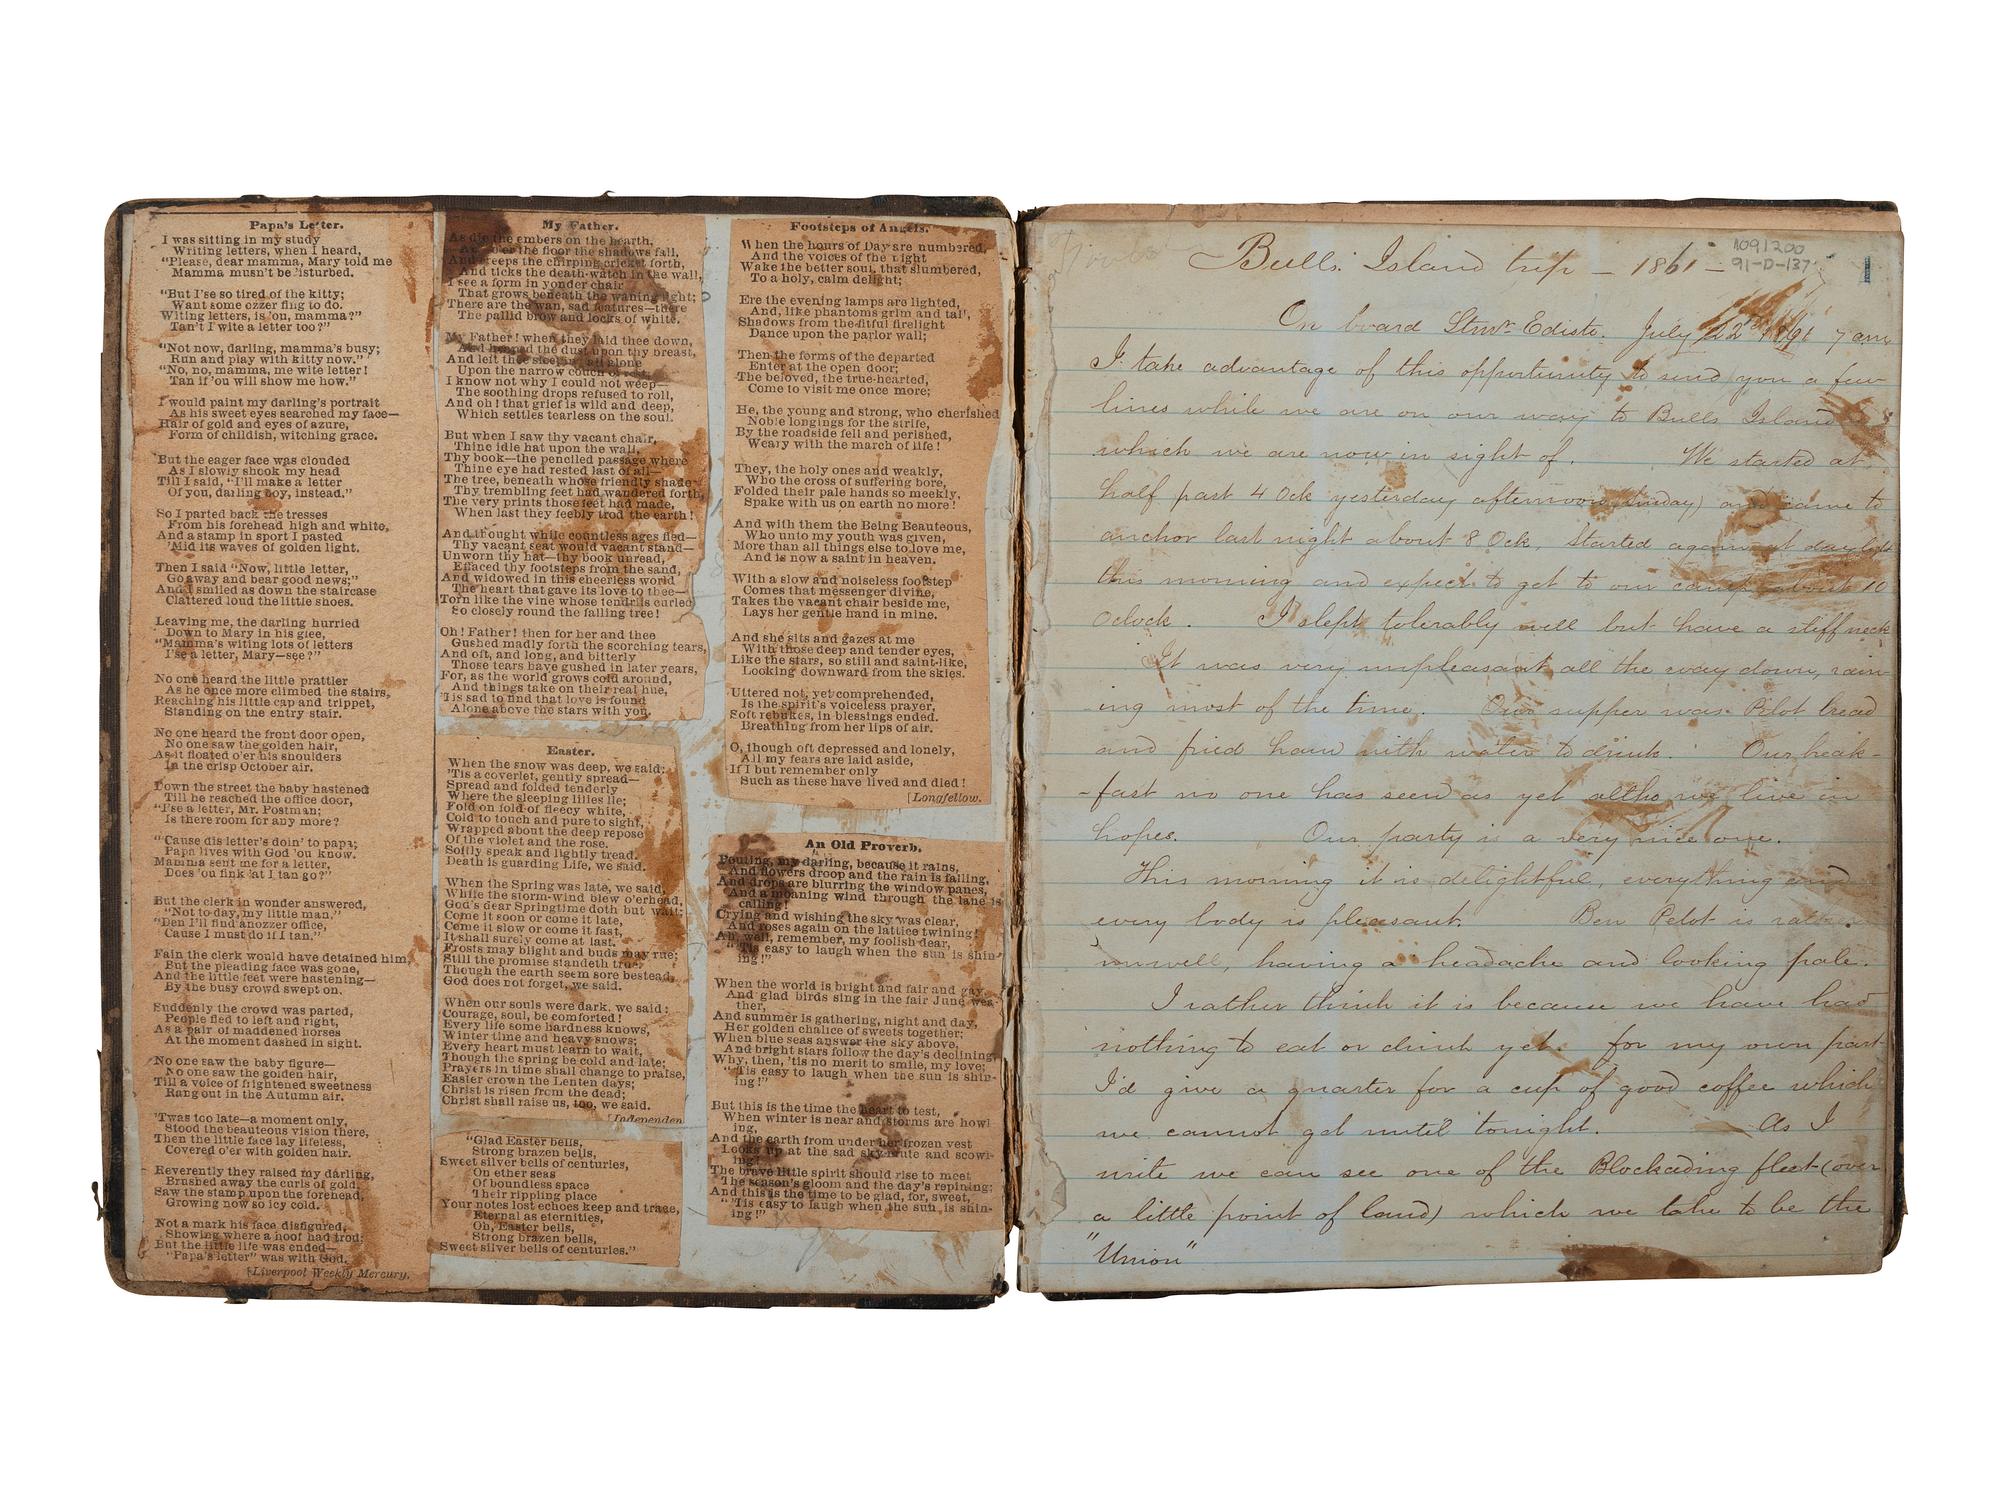 Papa's Letter.
I was sitting in my study
Writing letters, when I heard,
"Please, dear mamma, Mary told me
Mamma musn't be 'isturbed.
"But I'se so tired of the kitty;
Want some ozzer fing to do.
Witing letters, is 'ou, mamma?"
Tan't I wite a letter too?"
"Not now, darling, mamma's busy;
Run and play with kitty now."
"No, no, mamma, me wite letter!
Tan if 'ou will show me how."
I would paint my darling's portrait
As his sweet eyes searched my face—
Hair of gold and eyes of azure,
Form of childish, witching grace.
But the eager face was clouded
As I slowly shook my head
Till I said, "I'll make a letter
Of you, darling boy, instead."
So I parted back the tresses
From his forehead high and white,
And a stamp in sport I pasted
'Mid its waves of golden light.
Then I said "Now, little letter,
Go away and bear good news;"
And I smiled as down the staircase
Clattered loud the little shoes.
Leaving me, the darling hurried
Down to Mary in his glee,
"Mamma's witing lots of letters
I'se a letter, Mary—see?"
No one heard the little prattler
As he once more climbed the stairs,
Reaching his little cap and tippet,
Standing on the entry stair.
No one heard the front door open,
No one saw the golden hair,
As it floated o'er his shoulders
In the crisp October air.
Down the street the baby hastened
Till he reached the office door,
"I'se a letter, Mr. Postman;
Is there room for any more?
"'Cause dis letter's doin' to papa;
Papa lives with God 'ou know.
Mamma sent me for a letter,
Does 'ou fink 'at I tan go?"
But the clerk in wonder answered,
"Not to-day, my little man,"
"Den I'll find anozzer office,
'Cause I must do if I tan."
Fain the clerk would have detained him,
But the pleading face was gone,
And the little feet were hastening—
By the busy crowd swept on.
Suddenly the crowd was parted,
People fled to left and right,
As a pair of maddened horses
At the moment dashed in sight.
No one saw the baby figure—
No one saw the golden hair,
Till a voice of frightened sweetness
Rang out in the Autumn air.
'Twas too late—a moment only,
Stood the beauteous vision there,
Then the little face lay lifeless,
Covered o'er with golden hair.
Reverently they raised my darling,
Brushed away the curls of gold,
Saw the stamp upon the forehead,
Growing now so icy cold.
Not a mark his face disfigured,
Showing where a hoof had trod;
But the little life was ended—
"Papa's letter" was with God.
[Liverpool Weekly Mercury.
My Father.
As die the embers on the hearth,
And o'er the floor the shadows fall,
And creeps the chirping cricket forth,
And ticks the death-watch in the wall,
I see a form in yonder chair
That grows beneath the waning light;
There are the wan, sad features—there
The pallid brow and locks of white.
My Father! when they laid thee down,
And heaped the dust upon thy breast,
And left thee sleeping all alone
Upon the narrow couch of rest,
I know not why I could not weep—
The soothing drops refused to roll,
And oh! that grief is wild and deep,
Which settles tearless on the soul.
But when I saw thy vacant chair,
Thine idle hat upon the wall,
Thy book—the pencilled passage where
Thine eye had rested last of all—
The tree, beneath whose friendly shade
Thy trembling feet had wandered forth,
The very prints those feet had made,
When last they feebly trod the earth!
And thought while countless ages fled—
Thy vacant seat would vacant stand—
Unworn thy hat—thy book unread,
Effaced thy footsteps from the sand,
And widowed in this cheerless world
The heart that gave its love to thee—
Torn like the vine whose tendrils curled
So closely round the falling tree!
Oh! Father! then for her and thee
Gushed madly forth the scorching tears,
And oft, and long, and bitterly
Those tears have gushed in later years,
For, as the world grows cold around,
And things take on their real hue,
'Tis sad to find that love is found
Alone above the stars with you.
Easter.
When the snow was deep, we said:
'Tis a coverlet, gently spread—
Spread and folded tenderly
Where the sleeping lilies lie;
Fold on fold of fleecy white,
Cold to touch and pure to sight,
Wrapped about the deep repose
Of the violet and the rose.
Softly speak and lightly tread.
Death is guarding Life, we said.
When the Spring was late, we said,
While the storm-wind blew o'erhead,
God's dear Springtime doth but wait;
Come it soon or come it late,
Come it slow or come it fast,
It shall surely come at last.
Frosts may blight and buds may rue;
Still the promise standeth true;
Though the earth seem sore bestead,
God does not forget, we said.
When our souls were dark, we said:
Courage, soul, be comforted!
Every life some hardness knows,
Winter time and heavy snows;
Every heart must learn to wait,
Though the spring be cold and late;
Prayers in time shall change to praise,
Easier crown the Lenten days;
Christ is risen from the dead;
Christ shall raise us, too, we said.
[Independen
"Glad Easter bells,
Strong brazen bells,
Sweet silver bells of centuries,
On ether seas
Of boundless space
Their rippling place
Your notes lost echoes keep and trace,
Eternal as eternities,
Oh, Easter bells,
Strong brazen bells,
Sweet silver bells of centuries."
Footsteps of Angels.
When the hours of Day are numbered,
And the voices of the Night
Wake the better soul, that slumbered,
To a holy, calm delight;
Ere the evening lamps are lighted,
And, like phantoms grim and tall,
Shadows from the fitful firelight
Dance upon the parlor wall;
Then the forms of the departed
Enter at the open door;
The beloved, the true-hearted,
Come to visit me once more;
He, the young and strong, who cherished
Noble longings for the strife,
By the roadside fell and perished,
Weary with the march of life!
They, the holy ones and weakly,
Who the cross of suffering bore,
Folded their pale hands so meekly,
Spake with us on earth no more!
And with them the Being Beauteous,
Who unto my youth was given,
More than all things else to love me,
And is now a saint in heaven.
With a slow and noiseless footstep
Comes that messenger divine,
Takes the vacant chair beside me,
Lays her gentle hand in mine.
And she sits and gazes at me
With those deep and tender eyes,
Like the stars, so still and saint-like,
Looking downward from the skies.
Uttered not, yet comprehended,
Is the spirit's voiceless prayer,
Soft rebukes, in blessings ended.
Breathing from her lips of air.
O, though oft depressed and lonely,
All my fears are laid aside,
If I but remember only
Such as these have lived and died!
[Longfellow.
An Old Proverb.
Pouting, my darling, because it rains,
And flowers droop and the rain is falling,
And drops are blurring the window panes,
And a moaning wind through the lane is
calling!
Crying and wishing the sky was clear,
And roses again on the lattice twining!
Ah, well, remember, my foolish dear,
"'Tis easy to laugh when the sun is shin-
ing!"
When the world is bright and fair and gay,
And glad birds sing in the fair June wea-
ther,
And summer is gathering, night and day,
Her golden chalice of sweets together;
When blue seas answer the sky above,
And bright stars follow the day's declining,
Why, then, 'tis no merit to smile, my love;
"'Tis easy to laugh when the sun is shin-
ing!"
But this is the time the heart to test,
When winter is near and storms are howl
ing,
And the earth from under her frozen vest
Looks up at the sad sky mute and scowl-
ing!
The brave little spirit should rise to meet
The season's gloom and the day's repining;
And this is the time to be glad, for, sweet,
"'Tis easy to laugh when the sun is shin-
ing!"
Bulls Island trip — 1861 —
A091200
91-D-137
1
On board Stmr Edisto. July 22d 7 am
I take advantage of this opportunity to send you a few
lines while we are on our way to Bulls Island
which we are now in sight of. We started at
half past 4 Ock yesterday afternoon (Sunday) and came to
anchor last night about 8 Ock, started again at daylight
this morning and expect to get to our camp about 10
Oclock. I slept tolerably well but have a stiff neck
It was very unpleasant all the way down, rain-
-ing most of the time. Our supper was Pilot bread
and fried ham with water to drink. Our break-
-fast no one has seen as yet altho we live in
hopes. Our party is a very nice one.
This morning it is delightful, everything and
every body is pleasant. Ben Pelot is rather
unwell, having a headache and looking pale.
I rather think it is because we have had
nothing to eat or drink yet. for my own part
I'd give a quarter for a cup of good coffee which
we cannot get until tonight. As I
write we can see one of the Blockading fleet (over
a little point of land) which we take to be the
"Union"